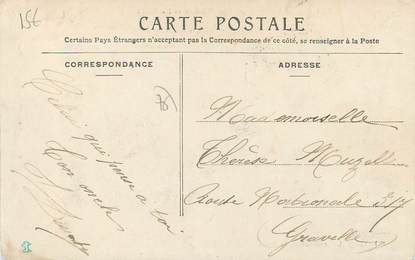 15€
CARTE POSTALE
Certains Pays Étrangers n'acceptant pas la Correspondance de ce côté, se renseigner à la Poste
CORRESPONDANCE
ADRESSE
qui pense a toi
Ton oncle
Mademoiselle
Thérèse
Route Nationale
Gravelle